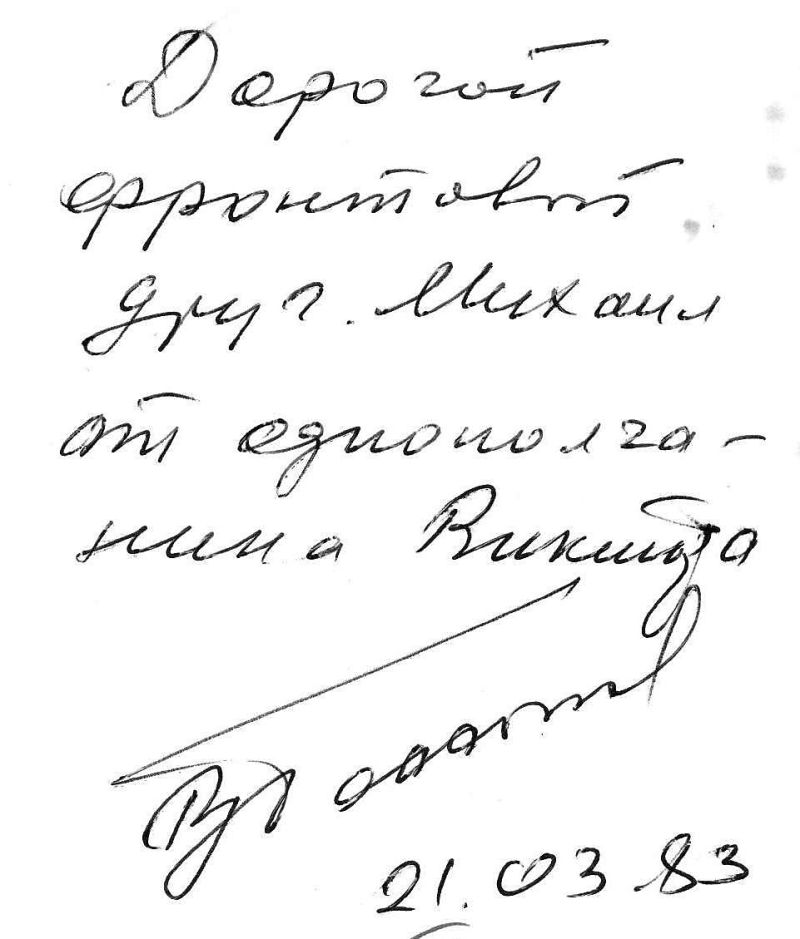 Дорогой
фронтовой
друг. Михаил
от однополча-
нина Виктора
21.03.83